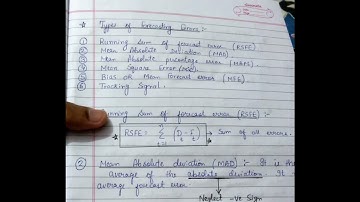 * Types of Forecasting Errors :-
① Running Sum of forecast error (RSFE)
② Mean Absolute Deviation (MAD)
③ Mean Absolute percentage error (MAPE)
④ Mean Square Error (MSE)
⑤ Bias or Mean forecast error (MFE)
⑥ Tracking Signal.
Running Sum of forecast error (RSFE) :-
RSFE = Σ (Dt - Ft) → Sum of all errors.
t=1
② Mean Absolute deviation (MAD) :- It is the
average of the absolute deviations. It
average forecast error
Neglect -ve Sign